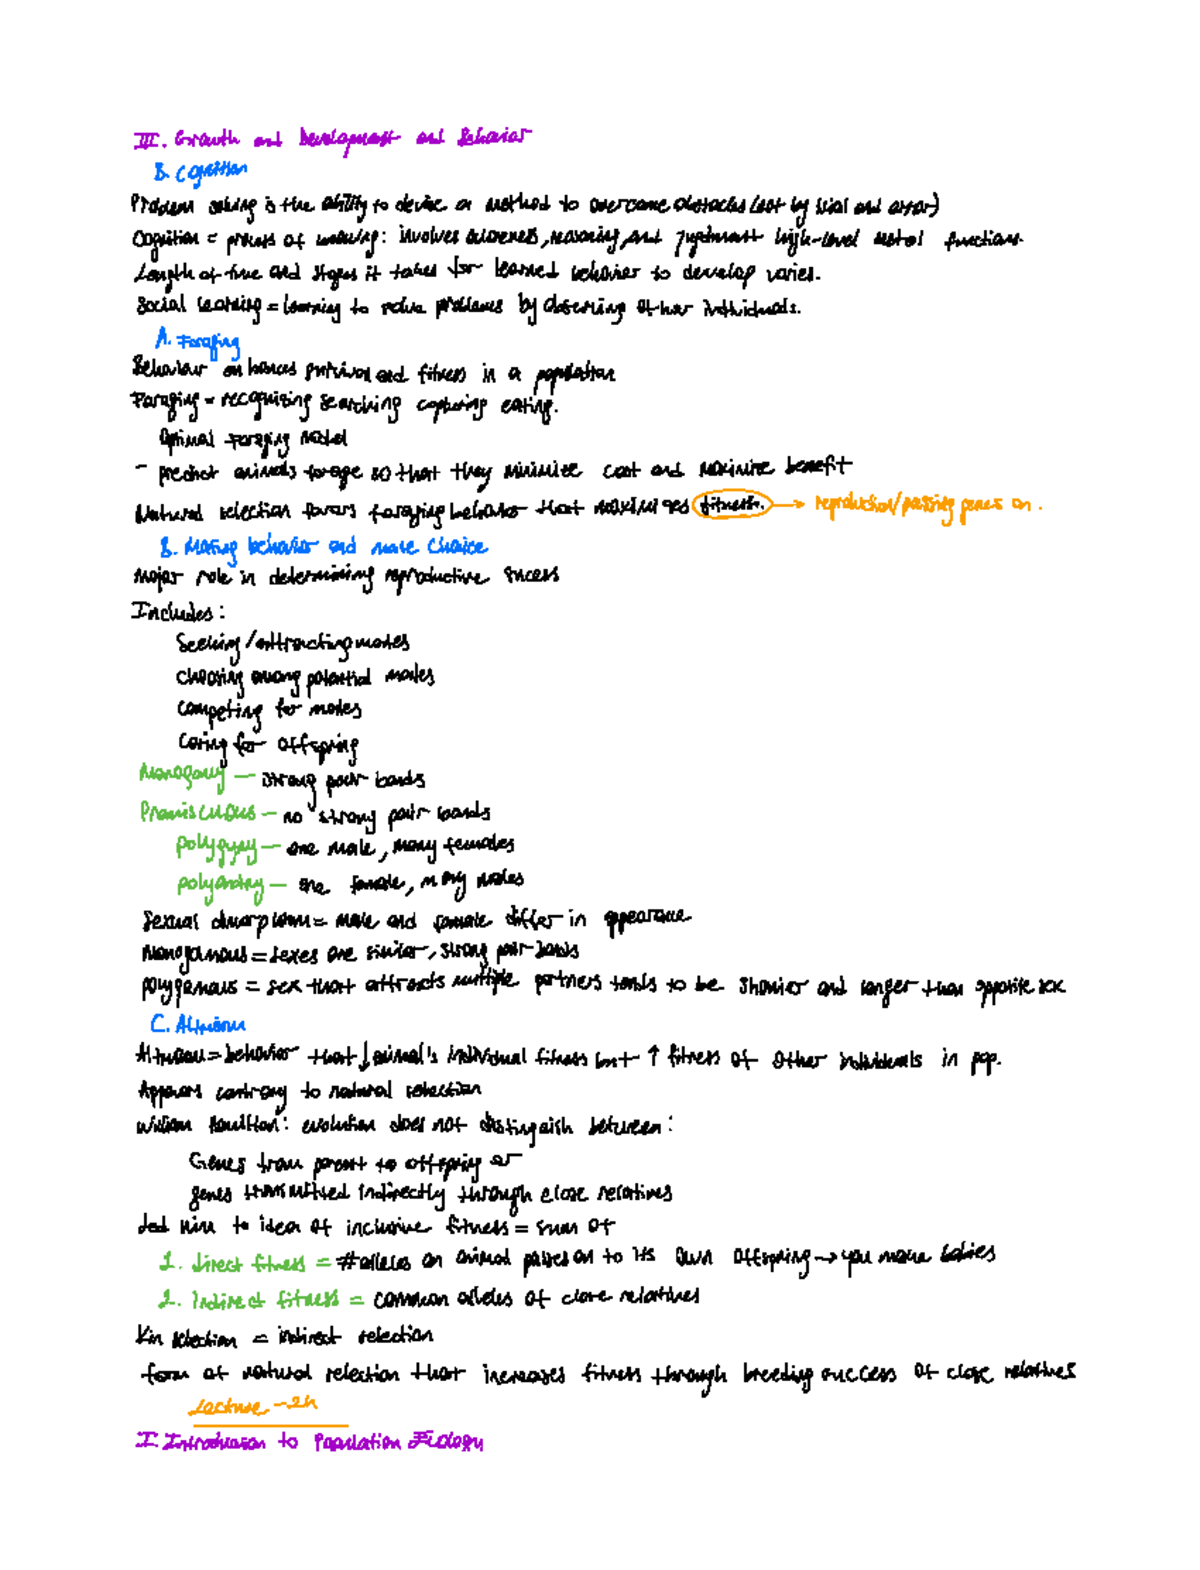 III. Growth and Development and Behavior
B. Cognition
Problem solving is the ability to devise a method to overcome obstacles (not by trial and error)
Cognition = process of knowing: involves awareness, reasoning, and judgement high-level mental functions.
Length of time and stages it takes for learned behavior to develop varies.
Social learning = learning to solve problems by observing other individuals.
A. Foraging
Behavior enhances survival and fitness in a population
Foraging = recognizing searching capturing eating.
Optimal foraging model
- predict animals forage so that they minimize cost and maximize benefit
Natural selection favors foraging behavior that maximises fitness. → reproduction/passing genes on.
B. Mating behavior and mate choice
Major role in determining reproductive sucess
Includes:
Seeking/attracting mates
choosing among potential mates
competing for mates
Caring for offspring
Monogamy — strong pair bonds
Promiscuous — no strong pair bonds
polygyny — one male, many females
polyandry — one female, many males
Sexual dimorphism = male and female differ in appearance
Monogamous = sexes are similar, strong pair-bonds
polygamous = sex that attracts multiple partners tends to be showier and larger than opposite sex
C. Altruism
Altruism = behavior that ↓ animal's individual fitness but ↑ fitness of other individuals in pop.
Appears contrary to natural selection
William Hamilton: evolution does not distinguish between:
Genes from parent to offspring or
genes transmitted indirectly through close relatives
Led him to idea of inclusive fitness = sum of
1. direct fitness = # alleles an animal passes on to its own offspring → you make babies
2. Indirect fitness = common alleles of close relatives
Kin selection = indirect selection
form of natural selection that increases fitness through breeding success of close relatives
Lecture - 24
I. Introduction to Population Ecology